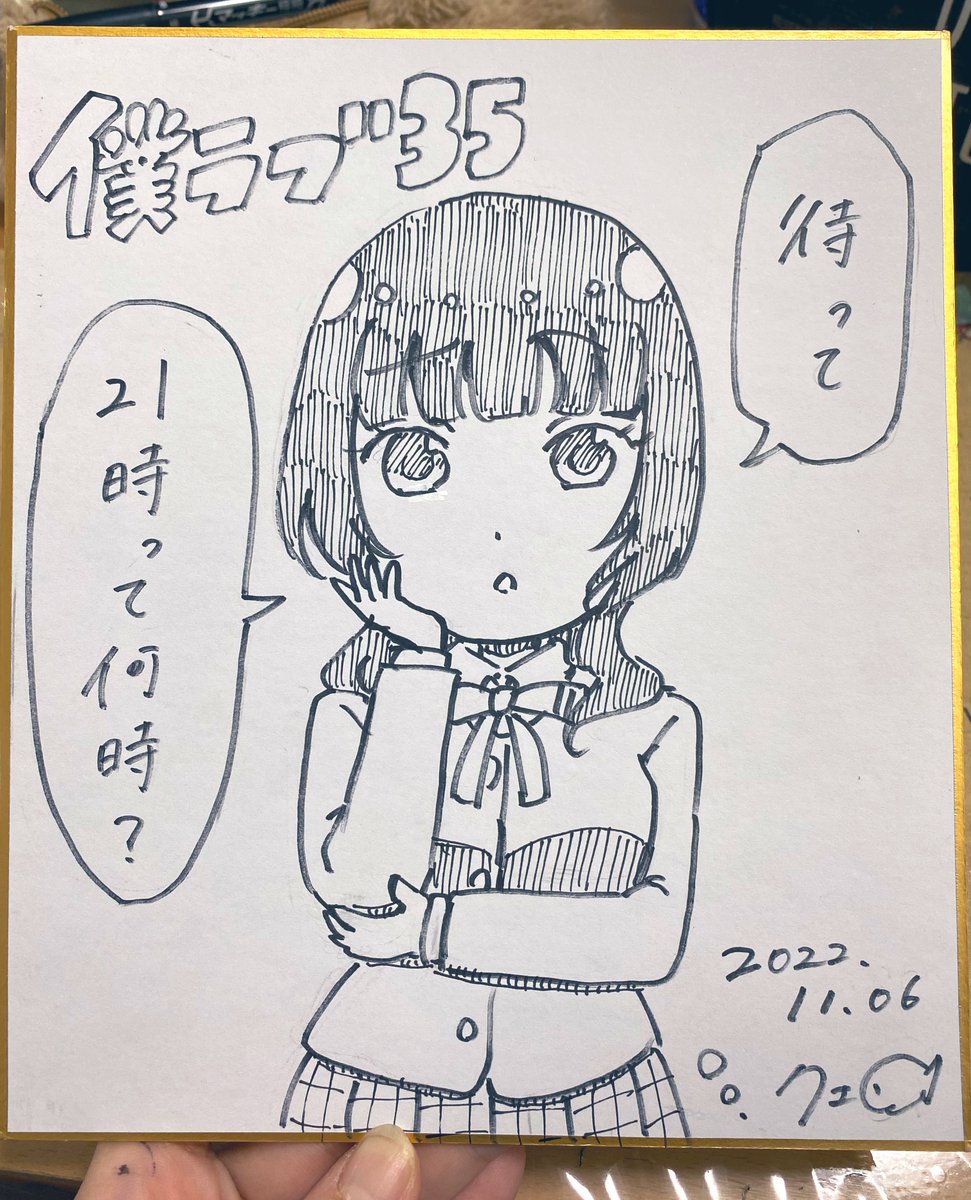 僕ラブ35
待って
21時って何時?
2022.
11.06
クェ